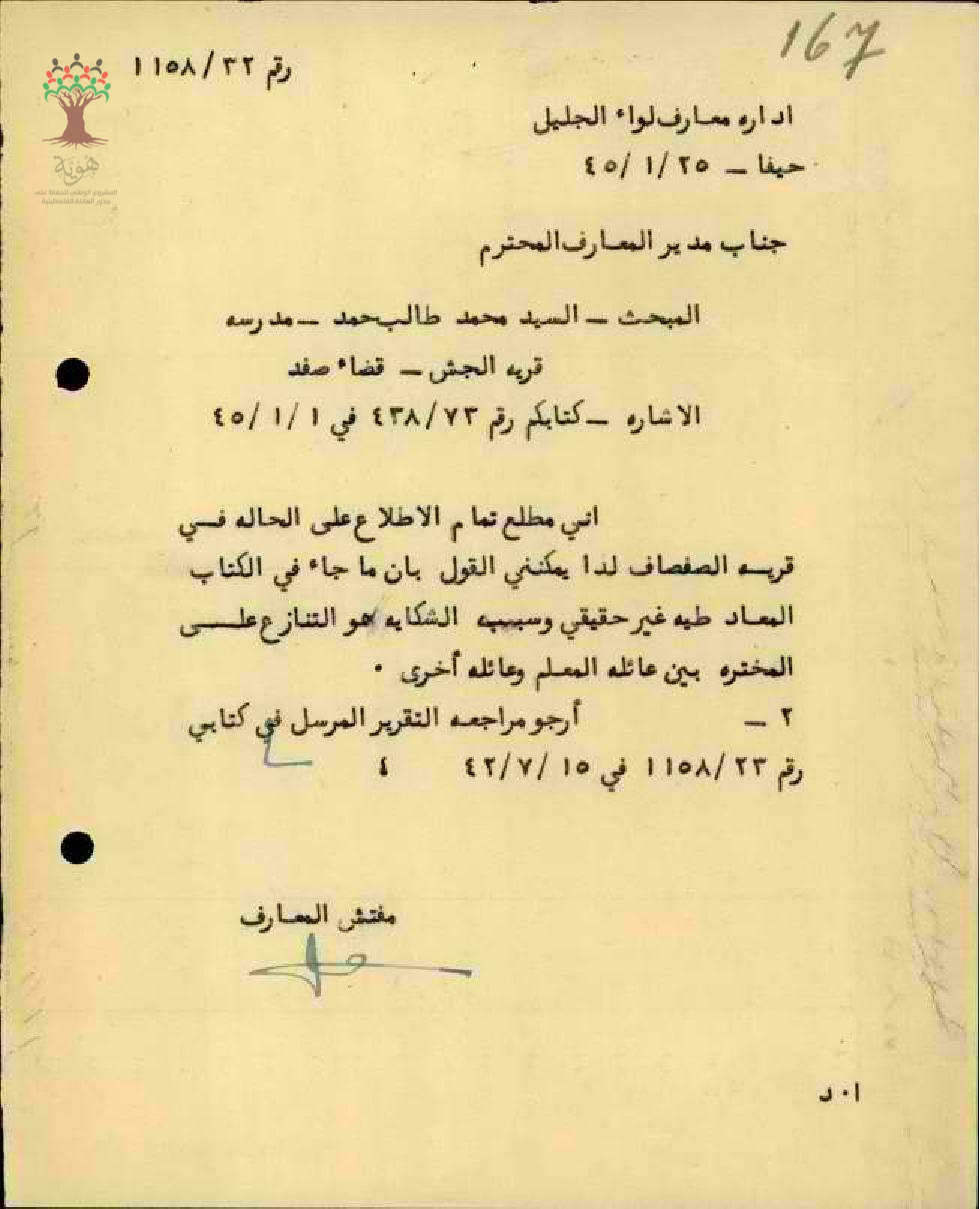 167
رقم ١١٥٨/٣٢
هوية
المشروع الوطني للحفاظ على
جذور العائلة الفلسطينية
اداره معارف لواء الجليل
حيفا – ٤٥/١/٢٥
جناب مدير المعارف المحترم
المبحث – السيد محمد طالب حمد – مدرسه
قريه الجش – قضاء صفد
الاشاره – كتابكم رقم ٤٣٨/٧٣ في ٤٥/١/١
اني مطلع تمام الاطلاع على الحاله فـي
قريـه الصفصاف لدا يمكنني القول بان ما جاء في الكتاب
المعاد طيه غير حقيقي وسبب الشكايه هو التنازع علـــى
المختره بين عائله المعلم وعائله أخرى .
٢ – أرجو مراجعه التقرير المرسل في كتابي
رقم ١١٥٨/٢٣ في ٤٢/٧/١٥ ٤
مفتش المعارف
ا٠د